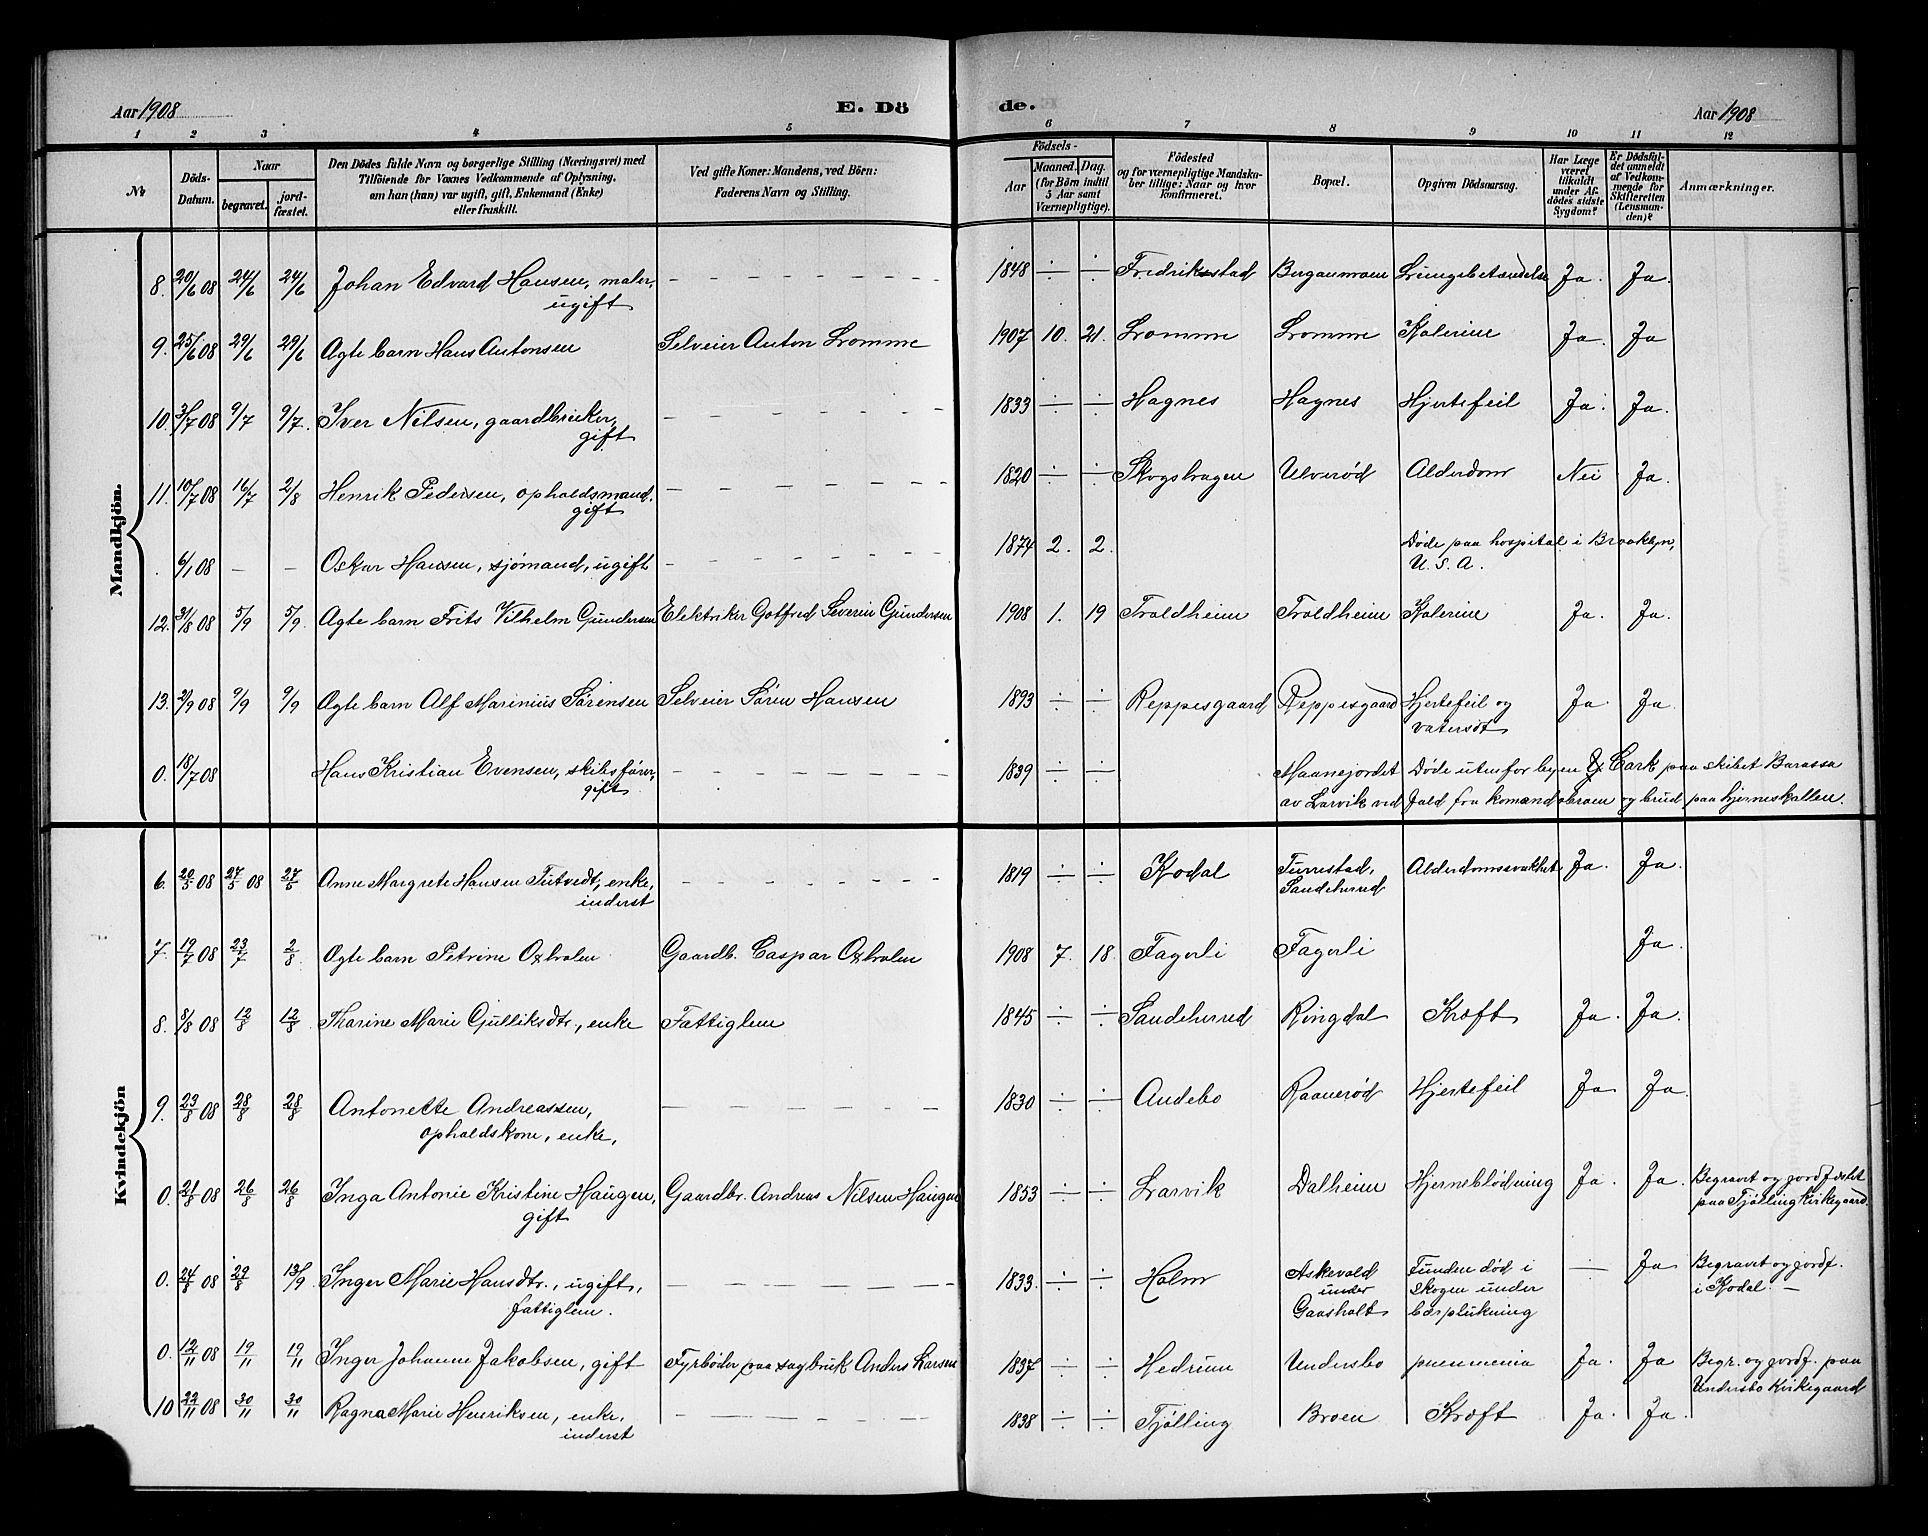 Aar 1908
E. Dö
de.
Aar 1908
1 2 3 4 5 6 7 8 9 10 11 12
№
Döds-
Datum.
Naar
begravet.
jord-
fæstet.
Den Dödes fulde Navn og borgerlige Stilling (Næringsvei) med
Tilföiende for Voxnes Vedkommende af Oplysning,
om han (hun) var ugift, gift, Enkemand (Enke)
eller fraskilt.
Ved gifte Koner: Mandens, ved Börn:
Faderens Navn og Stilling.
Födsels-
Aar
Maaned. Dag.
(for Börn indtil
5 Aar samt
Værnepligtige).
Födested
og for værnepligtige Mandska-
ber tillige: Naar og hvor
konfirmeret.
Bopæl.
Opgiven Dödsaarsag.
Har Læge
været
tilkaldt
under Af-
dödes sidste
Sygdom?
Er Dödsfal-
det anmeldt
af Vedkom-
mende for
Skifteretten
(Lensman-
den)?
Anmærkninger.
Mandkjön.
8. 20/6 08 24/6 24/6 Johan Edvard Hansen, maler, – – – 1848 ÷ ÷ Fredrikstad Lungebetændelse Ja. Ja.
ugift
9. 25/6 08 29/6 29/6 Ægte barn Hans Antonsen Selveier Anton Lromme 1907 10. 21. Lromme Lromme Kolerine Ja. Ja
10. 3/7 08 9/7 9/7. Iver Nilsen, gaardbruker, – – – 1833 ÷ ÷ Hagnes Hagnes Hjertefeil Ja. Ja.
gift
11. 10/7 08 16/7 2/8 Henrik Pedersen, opholdsmand. – – – 1820 ÷ ÷ Skogshagen Ulverød Alderdom Nei Ja.
gift
6/1 08 – – Oskar Hansen, sjömand, ugift – – – 1874 2. 2. Døde paa hospital i Brooklyn,
U. S. A.
12. 31/8 08 5/9 5/9. Ægte barn Frits Vilhelm Gundersen Elektriker Gotfred Severin Gundersen 1908 1. 19 Troldheim Troldheim Kolerine Ja. Ja.
13. 2/9 08 9/9 9/9 Ægte barn Alf Marinius Sørensen Selveier Søren Hansen 1893 ÷ ÷ Reppesgaard Reppesgaard Hjertefeil og Ja. Ja.
vatersot
0. 18/7 08 Hans Kristian Evensen, skibsfører, – – – 1839 ÷ ÷ Maanejordet Døde utenfor byen Cork paa skibet Barossa
gift av Larvik ved fald fra komandobroen og brud paa hjerneskallen.
Kvindekjön
6. 20/5 08 27/5 08 27/5 Anne Margrete Hansen Tutvedt, enke, – – – 1819 ÷ ÷ Kodal Furrestad, Alderdomssvakhet Ja. Ja.
inderst Sandeherred
7. 19/7 08 23/7 2/8 Ægte barn Petrine Oxholen Gaardb. Caspar Oxholen 1908 7. 18. Fagerli Fagerli Ja.
8. 8/8 08 12/8 12/8 Tharine Marie Gulliksdtr., enke Fattiglem 1845 ÷ ÷ Sandeherred Ringdal Kræft Ja. Ja.
9. 23/8 08 28/8 28/8 Antonette Andreassen, – – – 1830 ÷ ÷ Andebo Raanerød Hjertefeil Ja Ja.
opholdskone, enke,
0. 21/8 08 26/8 26/8 Inga Antonie Kristine Haugen, Gaardbr. Andreas Nilsen Haugen 1853 ÷ ÷ Larvik Dalheim Hjerneblödning Ja. Ja. Begravet og jordfæstet
gift paa Tjølling Kirkegaard.
0. 24/8 08 29/8 13/9 Inger Marie Hansdtr., ugift, – – – 1833. ÷ ÷ Holm Askevald Funden død i – Ja Begravet og jordf.
under Skogen under i Kodal. –
fattiglem. Gaasholt bærplukning
0. 12/11 08 19/11 19/11 Inger Johanne Jakobsen, gift Fyrbøder paa sagbruk Anders Larsen 1837 ÷ ÷ Hedrum Undersbo pneumenia Ja. Ja Begr. og jordf. paa
Undersbo Kirkegaard
10 22/11 08 30/11 30/11 Ragna Marie Henriksen, enke, – – – 1838 ÷ ÷ Tjølling Broen Kræft Ja. Ja.
inderst